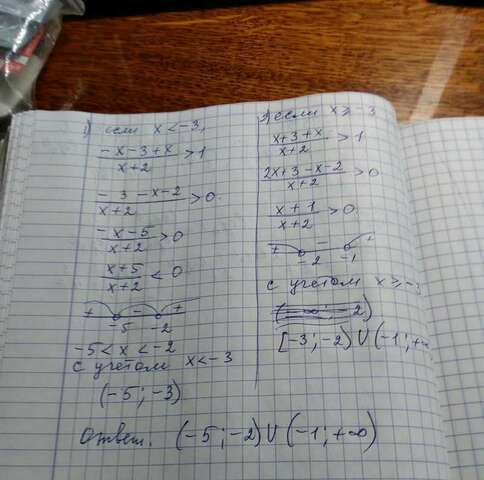 1) если x < -3,
(-x-3+x)/(x+2) > 1
(-3-x-2)/(x+2) > 0
(-x-5)/(x+2) > 0
(x+5)/(x+2) < 0
+ - +
-5 -2
-5 < x < -2
с учетом x < -3
(-5; -3)
2) если x ⩾ -3
(x+3+x)/(x+2) > 1
(2x+3-x-2)/(x+2) > 0
(x+1)/(x+2) > 0
+ - +
-2 -1
с учетом x ⩾ -3
[-3; -2) U (-1; +∞
Ответ. (-5; -2) U (-1; +∞)